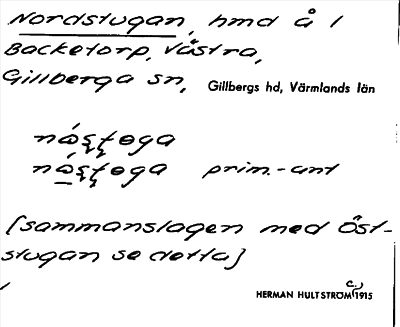 Nordstugan, hmd å 1
Backetorp, Västra,
Gillberga sn, Gillbergs hd, Värmlands län
prim.-ant
[sammanslagen med Öst-
stugan se detta]
HERMAN HULTSTRÖM c. 1915